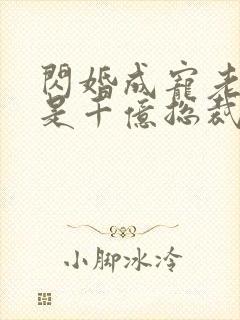 閃婚成寵老
是千億總裁
小脚冰冷